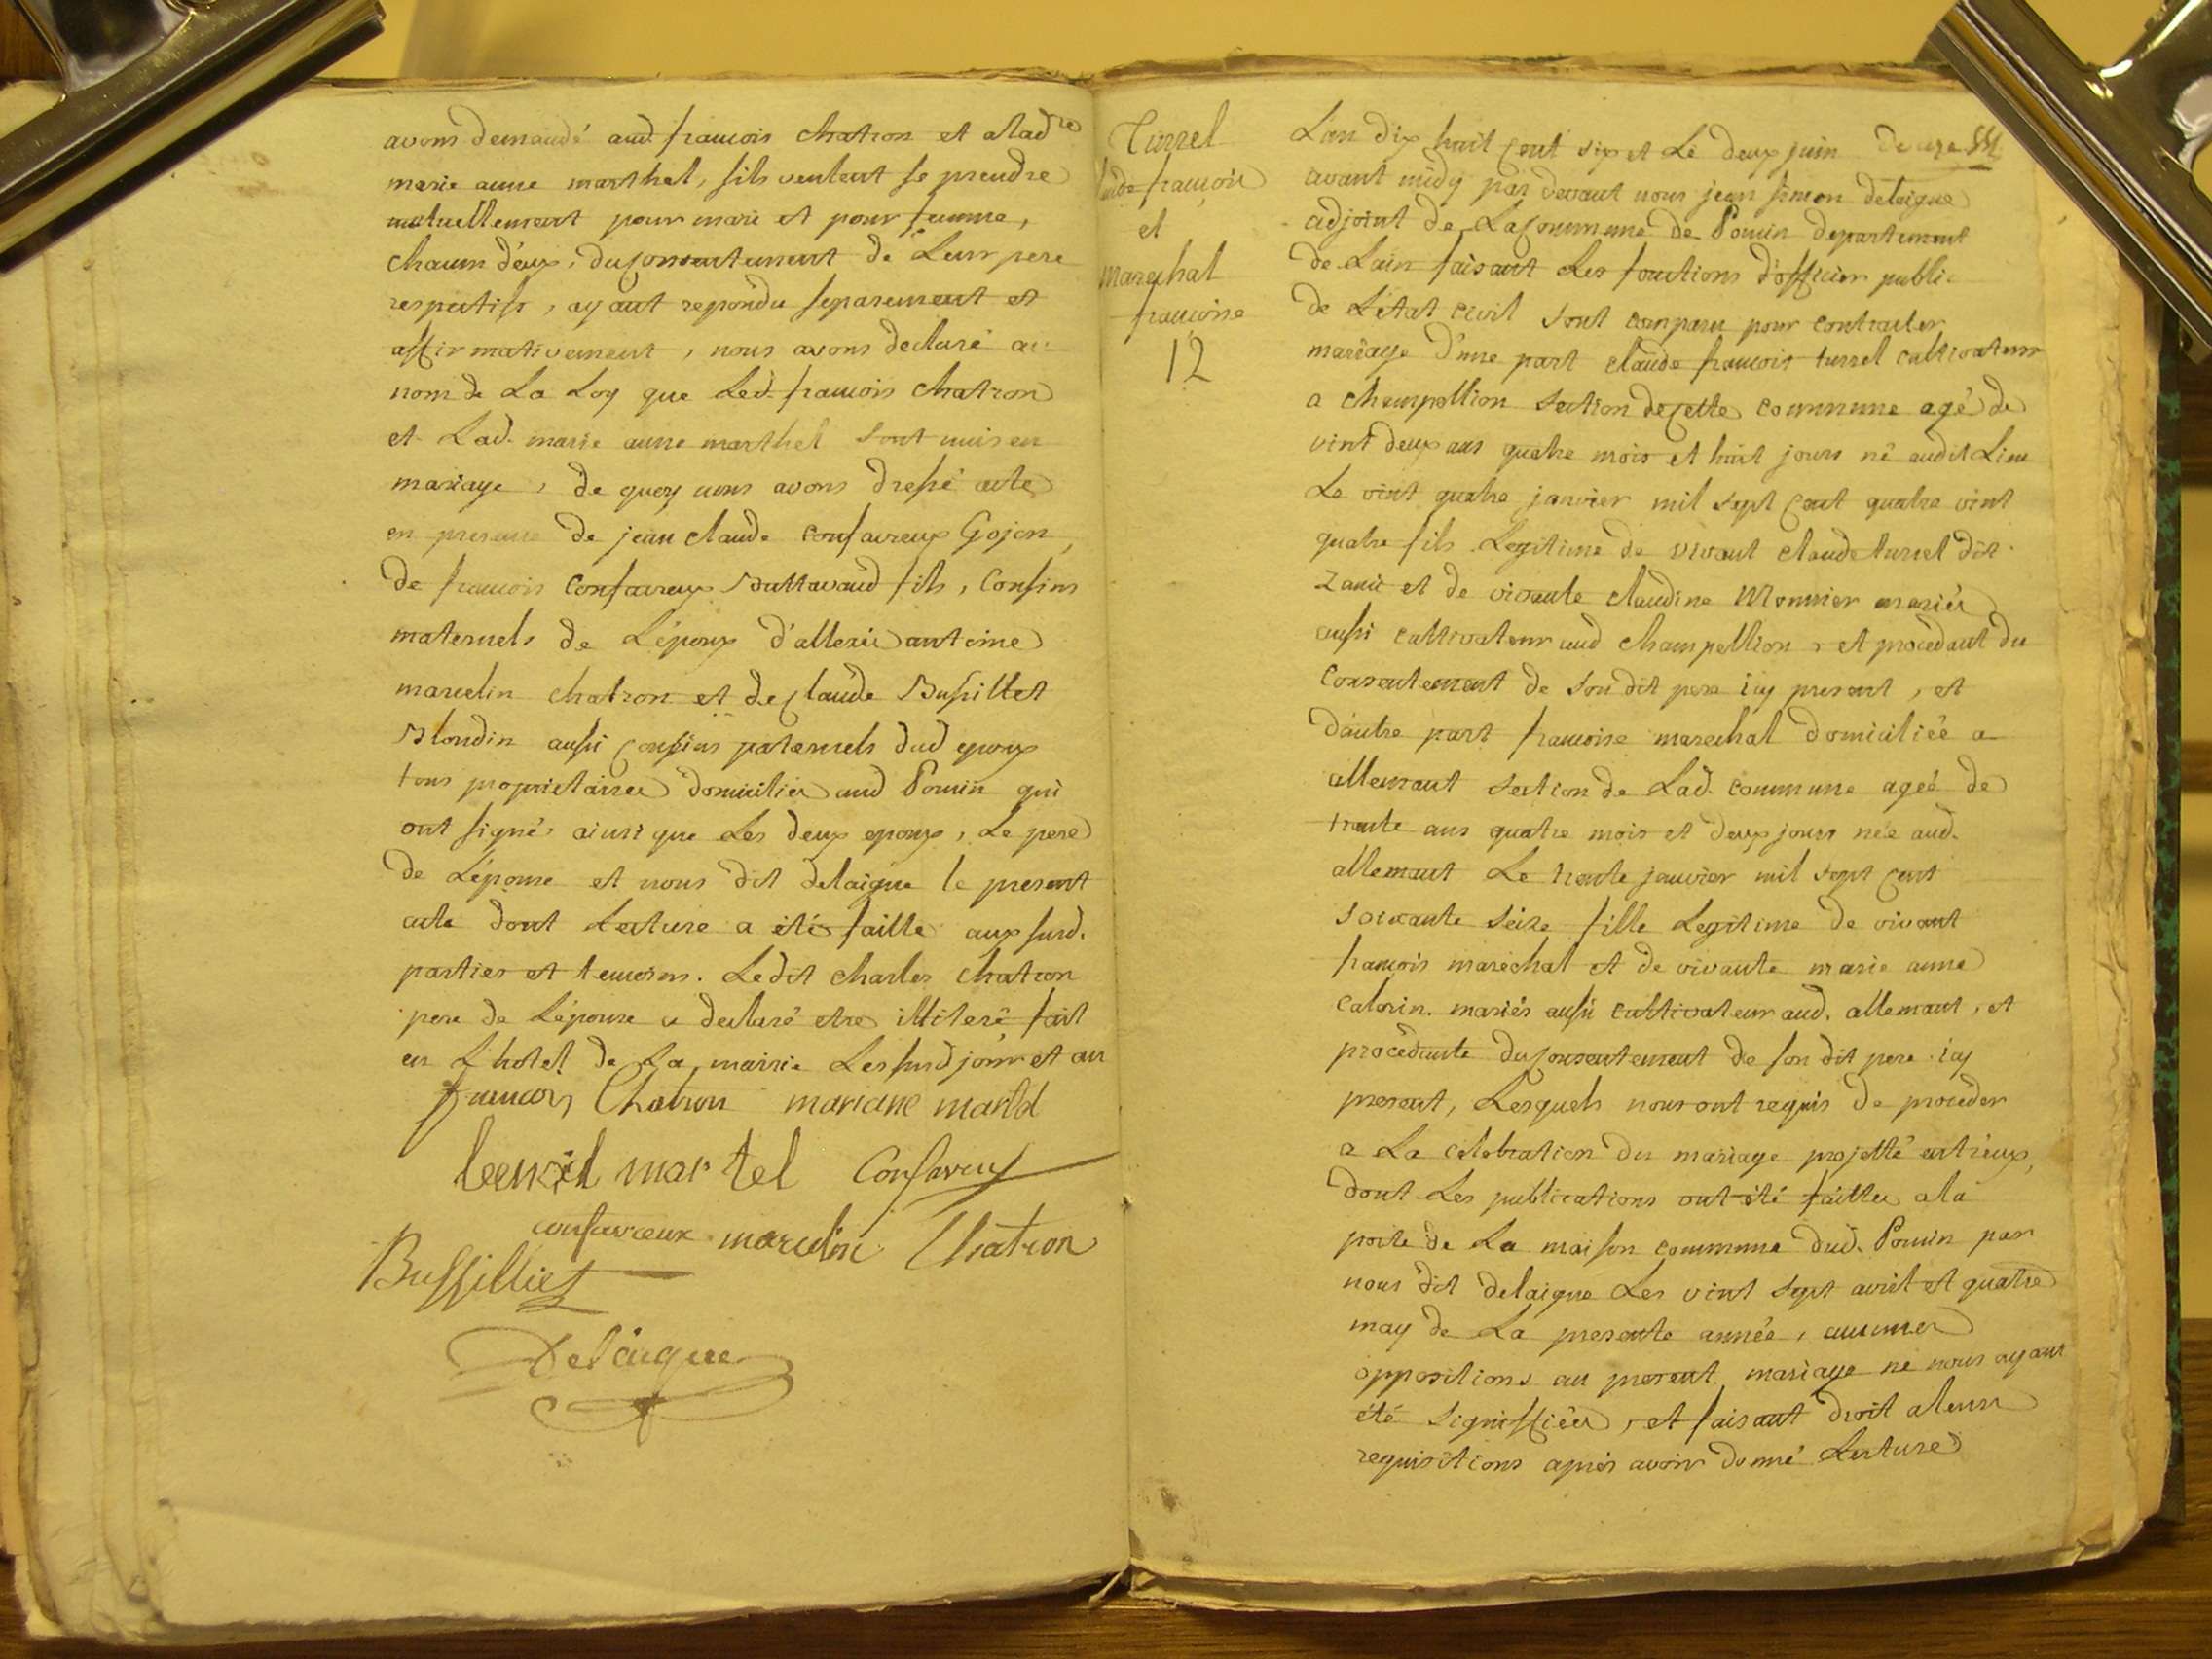 avons demandé aud. francois chatron et alad.
marie anne marthel, sils veulent se prendre
mutuellement pour mari et pour femme,
chacun d'eux, du consentement de Leur pere
respectifs, ayant repondu separement et
affirmativement, nous avons declaré au
nom de La Loy que Led. francois chatron
et Lad. marie anne marthel sont unis en
mariage, de quoy nous avons dressé acte
en presence de jean claude confavreux Gojon,
de francois confavreux fils, Consins
maternels de L'époux antoine
marcelin chatron et de claude Bussillet
Blondin aussi consins paternels dud epoux
tous proprietaires domiciliés aud Poncin qui
ont signés ainsi que Les deux epoux, Le pere
de L'épouse et nous dit delaigue le present
acte dont Lecture a été faitte aux susd.
parties et temoins. Ledit charles chatron
pere de L'épouse a declaré etre illiteré fait
en L'hotel de La mairie Les susd jour et an
francois Chatron mariane martel
benoit martel Confavreux
confavreux marcelin Chatron
Bussilliet
Delaigue
Turrel
claude francois
et
Marechal
francoise
12
L'an dix huit cent six et Le deux juin
avant midy par devant nous jean simon delaigue
adjoint de La commune de Poncin departement
de Lain faisant Les fonctions d'officier public
de L'état civil sont comparu pour contracter
mariage d'une part claude francois turrel cultivateur
a champollion section de cette commune agé de
vint deux ans quatre mois et huit jours né audit Lieu
Le vint quatre janvier mil sept cent quatre vint
quatre fils Legitime de vivant claude turrel dit
et de vivante claudine Monnier mariés
aussi cultivateur aud champollion, et procédant du
Consentement de son dit pere icy present, et
dautre part francoise marechal domiciliée a
allemant section de Lad. commune ageé de
trente ans quatre mois et deux jours née aud.
allemant Le trente janvier mil sept cent
soixante seize fille Legitime de vivant
françois maréchal et de vivante marie anne
mariés aussi cultivateur aud. allemant, et
procédante du consentement de son dit pere icy
present, Lesquels nous ont requis de procéder
a La celebration du mariage projetté entr'eux,
dont Les publications ont été faittes a la
porte de La maison commune dud. Poncin par
nous dit delaigue Les vint sept avril et quatre
may de La presente année, aucunes
oppositions au present mariage ne nous ayant
été signiffiées, et faisant droit a leurs
requisitions après avoir donné Lecture